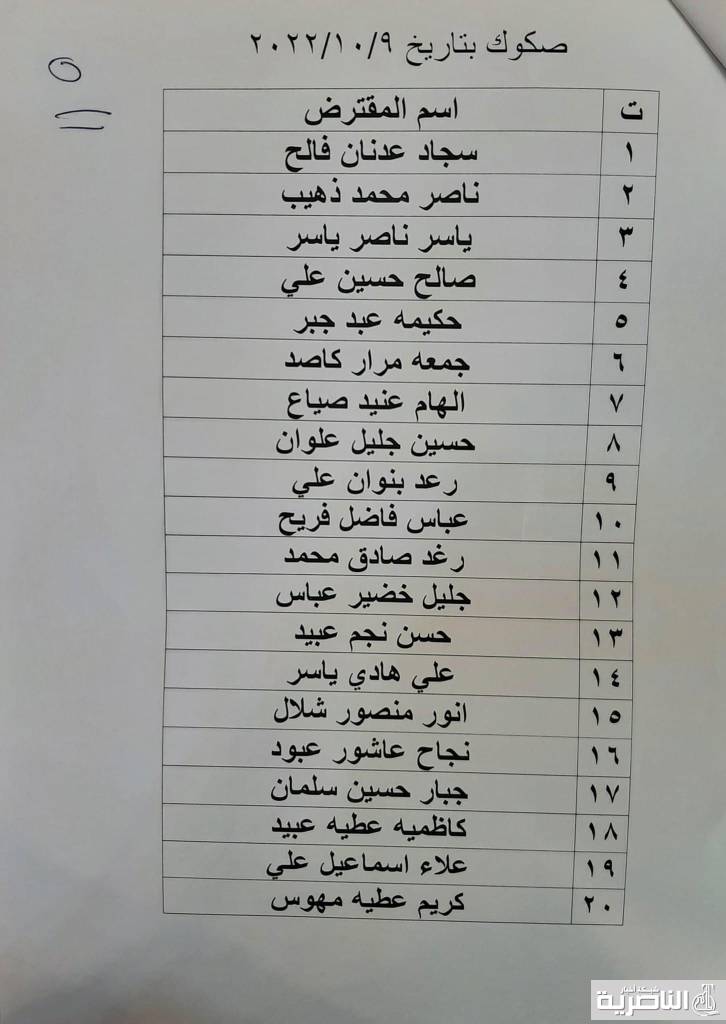 صكوك بتاريخ ٢٠٢٢/١٠/٩
ت اسم المقترض
١ سجاد عدنان فالح
٢ ناصر محمد ذهيب
٣ ياسر ناصر ياسر
٤ صالح حسين علي
٥ حكيمه عبد جبر
٦ جمعه مرار كاصد
٧ الهام عنيد صياع
٨ حسين جليل علوان
٩ رعد بنوان علي
١٠ عباس فاضل فريح
١١ رغد صادق محمد
١٢ جليل خضير عباس
١٣ حسن نجم عبيد
١٤ علي هادي ياسر
١٥ انور منصور شلال
١٦ نجاح عاشور عبود
١٧ جبار حسين سلمان
١٨ كاظميه عطيه عبيد
١٩ علاء اسماعيل علي
٢٠ كريم عطيه مهوس
شبكة أخبار
الناصرية